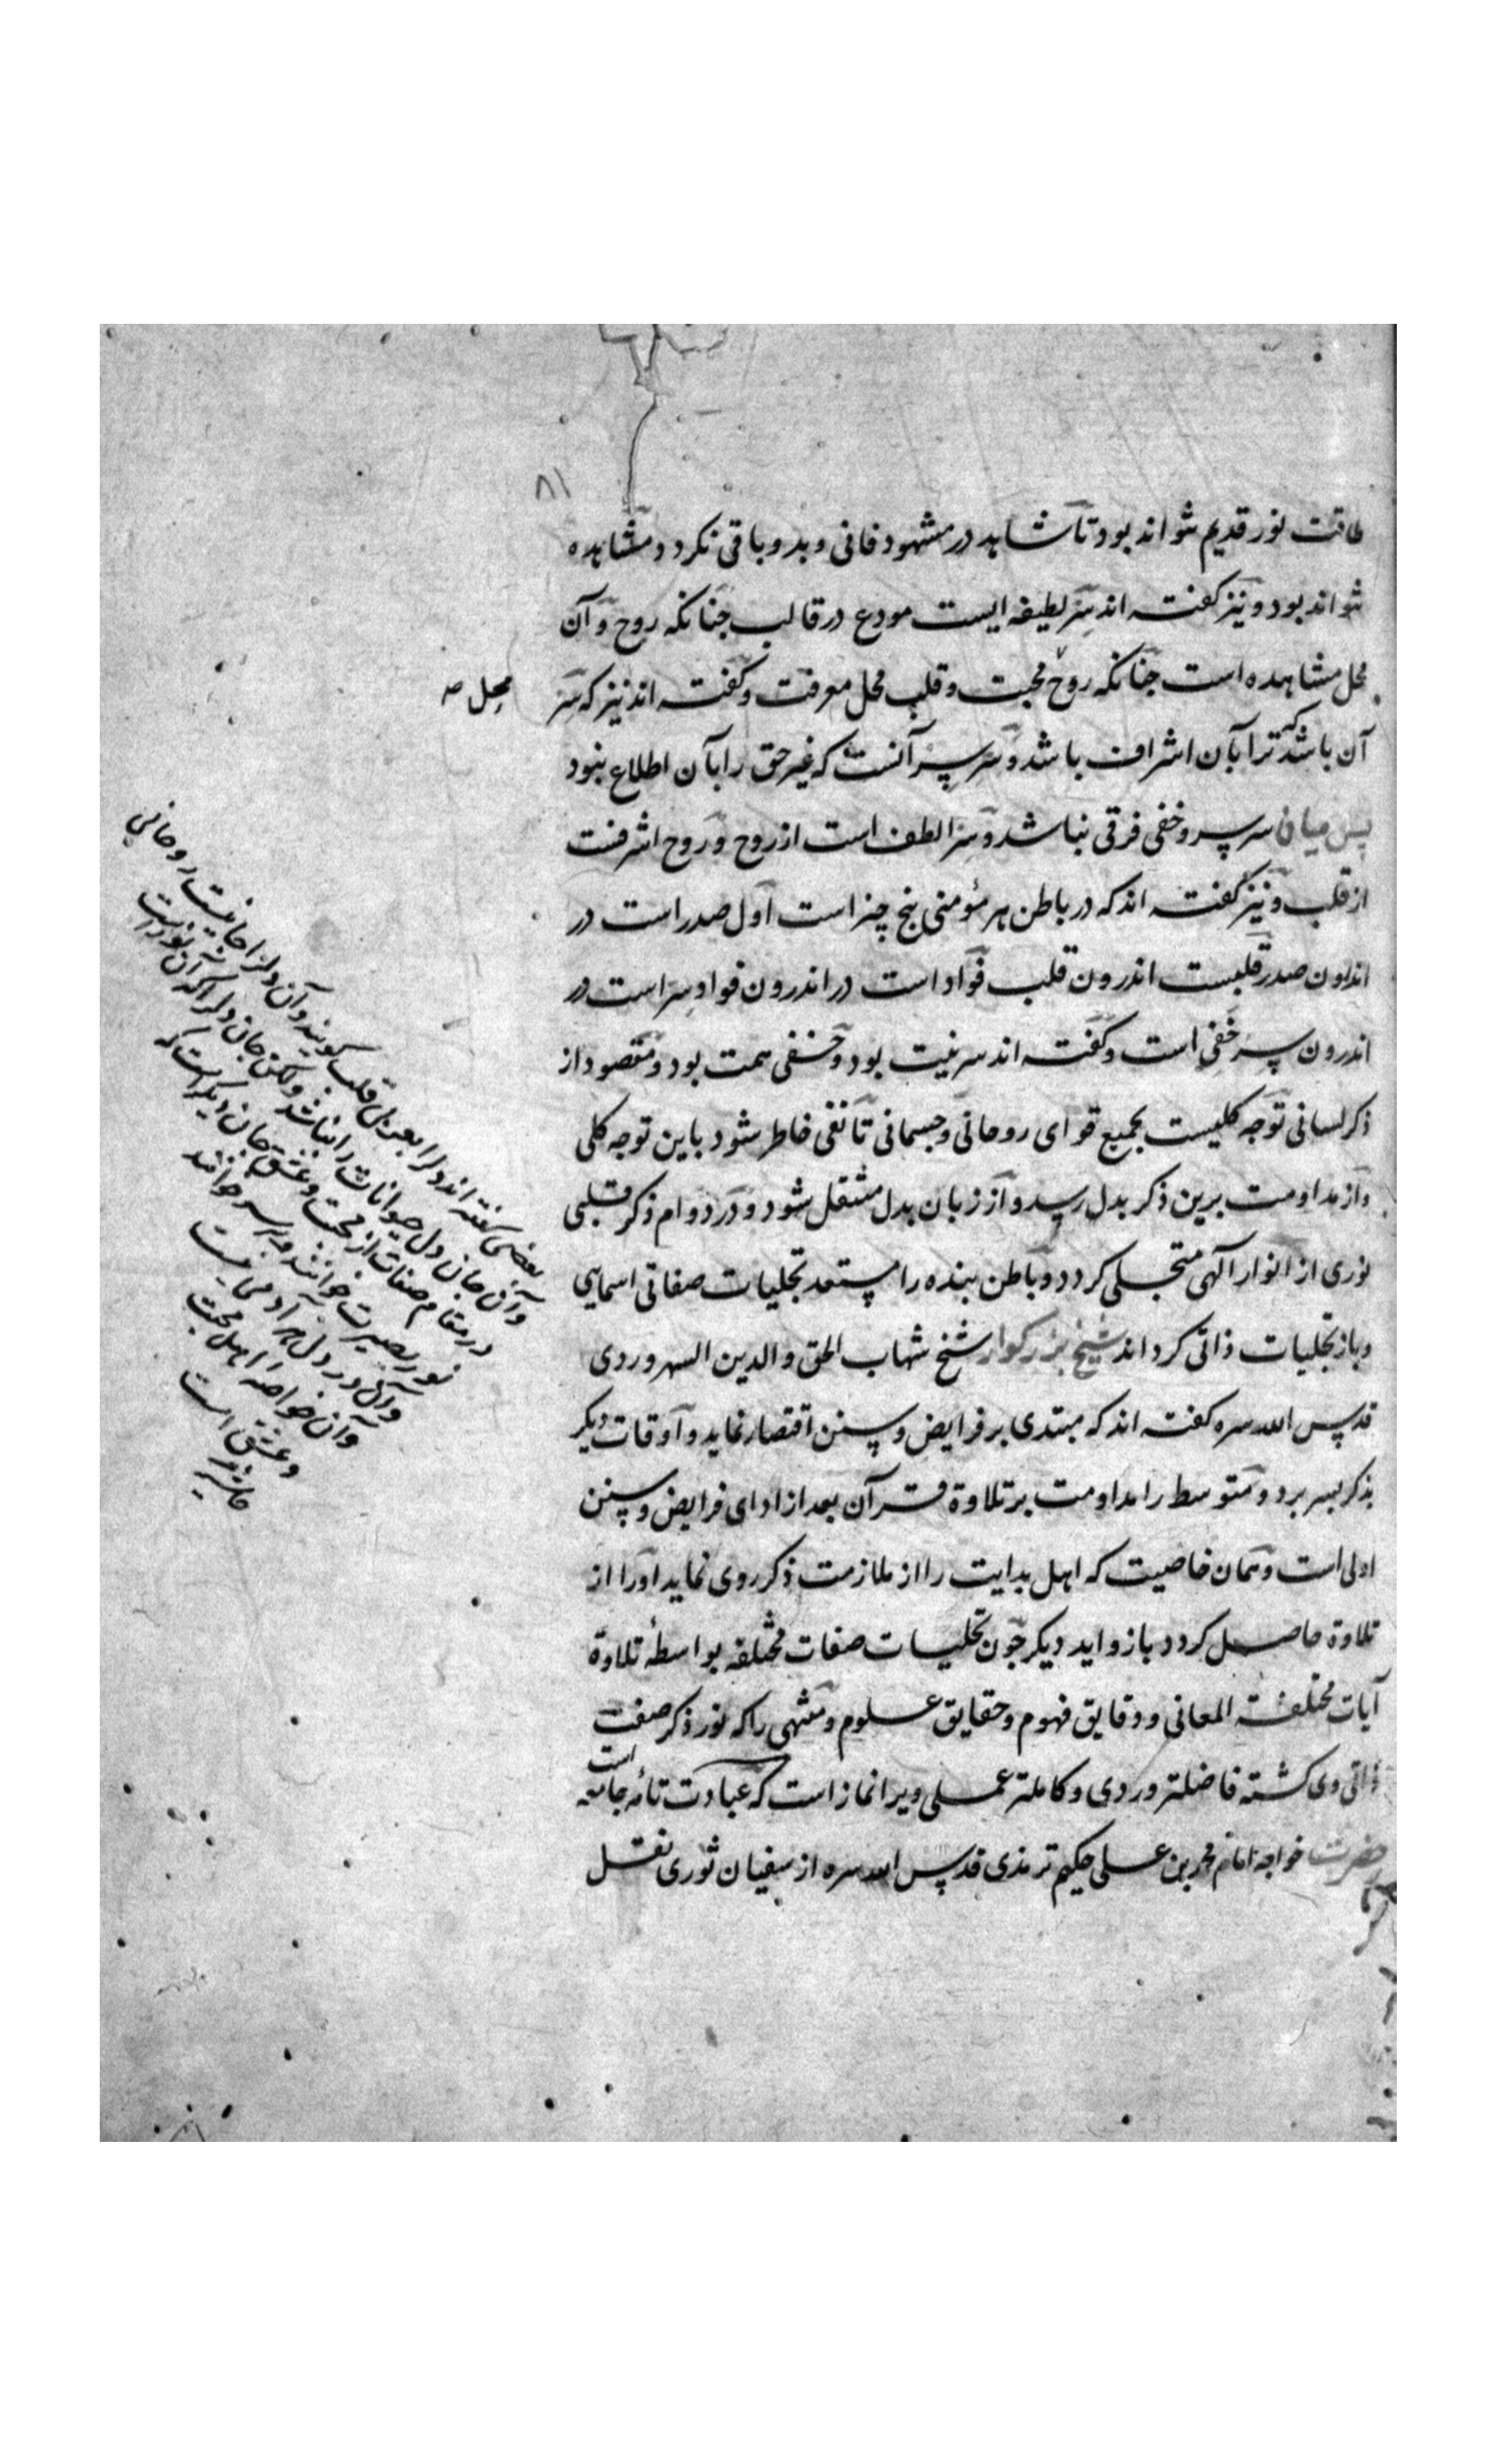 ۸۱
طاقت نور قدیم نتواند بود تا شاهد در مشهود فانی و بدو باقی نکردد مشاهده
نتواند بود و نیز کفته اند سر لطیفه ایست مودع در قالب جنانکه روح و آن
محل مشاهده است جنانکه روح محبت و قلب محل معرفت و کفته اند نیز که سر
محل صح
آن باشد که ترا بآن اشراف باشد و سر سر آنست که غیر حق را بآن اطلاع نبود
پس میان سر سر و خفی فرقی نباشد و سر الطف است از روح و روح اشرفست
از قلب و نیز کفته اند که در باطن هر مؤمنی پنج چیز است اول صدر است در
اندرون صدر قلبست اندرون قلب فوأد است در اندرون فواد سر است در
اندرون سر خفی است و کفته اند سر نیت بود و خفی همت بود و مقصود از
ذکر لسانی توجه کلیست بجمیع قوای روحانی و جسمانی تا نفی خاطر شود باین توجه کلی
و از مداومت برین ذکر بدل رسد و از زبان بدل منتقل شود و در دوام ذکر قلبی
نوری از انوار آلهی متجلی کردد و باطن بنده را مستعد تجلیات صفاتی اسمایی
و باز تجلیات ذاتی کرداند شیخ بزرکوار شیخ شهاب الحق و الدین السهروردی
قدس الله سره کفته اند که مبتدی بر فرایض و سنن اقتصار نماید و اوقات دیکر
بذکر بسر برد و متوسط را مداومت بر تلاوة قرآن بعد از ادای فرایض و سنن
اولی است و همان خاصیت که اهل بدایت را از ملازمت ذکر روی نماید او را از
تلاوة حاصل کردد با زواید دیکر جون تجلیات صفات مختلفه بواسطهٔ تلاوة
آیات مختلفة المعانی و دقایق فهوم و حقایق علوم و منتهی را که نور ذکر صفت
ذاتی وی کشته فاضلتر وردی و کاملتر عملی ویرا نماز است که عبادت تامهٔ جامعه است
حضرت خواجه امام محمد بن علی حکیم ترمذی قدس الله سره از سفیان ثوری نقل
بعضی کفته اند دلرا بعربی قلب کویند و آن دلرا جانیست روحانی
و آن جان دل حیوانات را نباشد ولکن جان دلرا که آن نور است
در مقام صفات از محبت و عشق جان دیکر است که
نور بصیرت خوانند و سر خوانند
و آن در دل هر آدمی نیست
و آن خواص اهل محبت
و عشق است